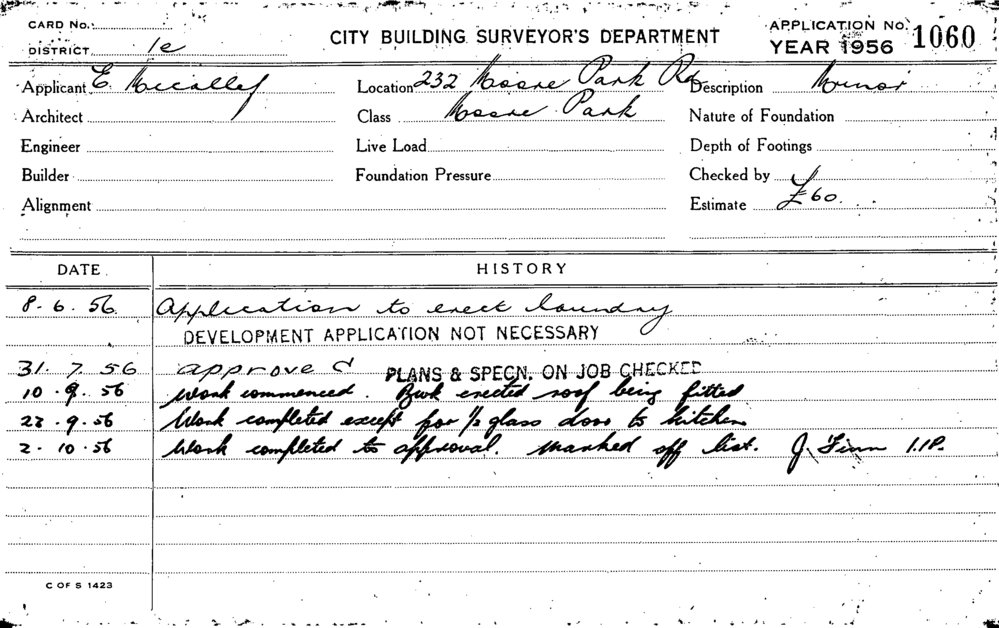 CARD No.
DISTRICT 1e
CITY BUILDING SURVEYOR'S DEPARTMENT
APPLICATION No. 1060
YEAR 1956
Applicant E. Micallef Location 232 Moore Park Rd Description Minor
Architect Class Moore Park Nature of Foundation
Engineer Live Load Depth of Footings
Builder Foundation Pressure Checked by
Alignment Estimate £60
DATE HISTORY
8. 6. 56. Application to erect laundry
DEVELOPMENT APPLICATION NOT NECESSARY
31. 7. 56 approved PLANS & SPECN. ON JOB CHECKED
10. 9. 56 Work commenced. erected roof being fitted
9. 56 Work completed except for 1/2 glass door to kitchen
2. 10. 56 Work completed to approval. Marked off list. J. Finn
C OF S 1423